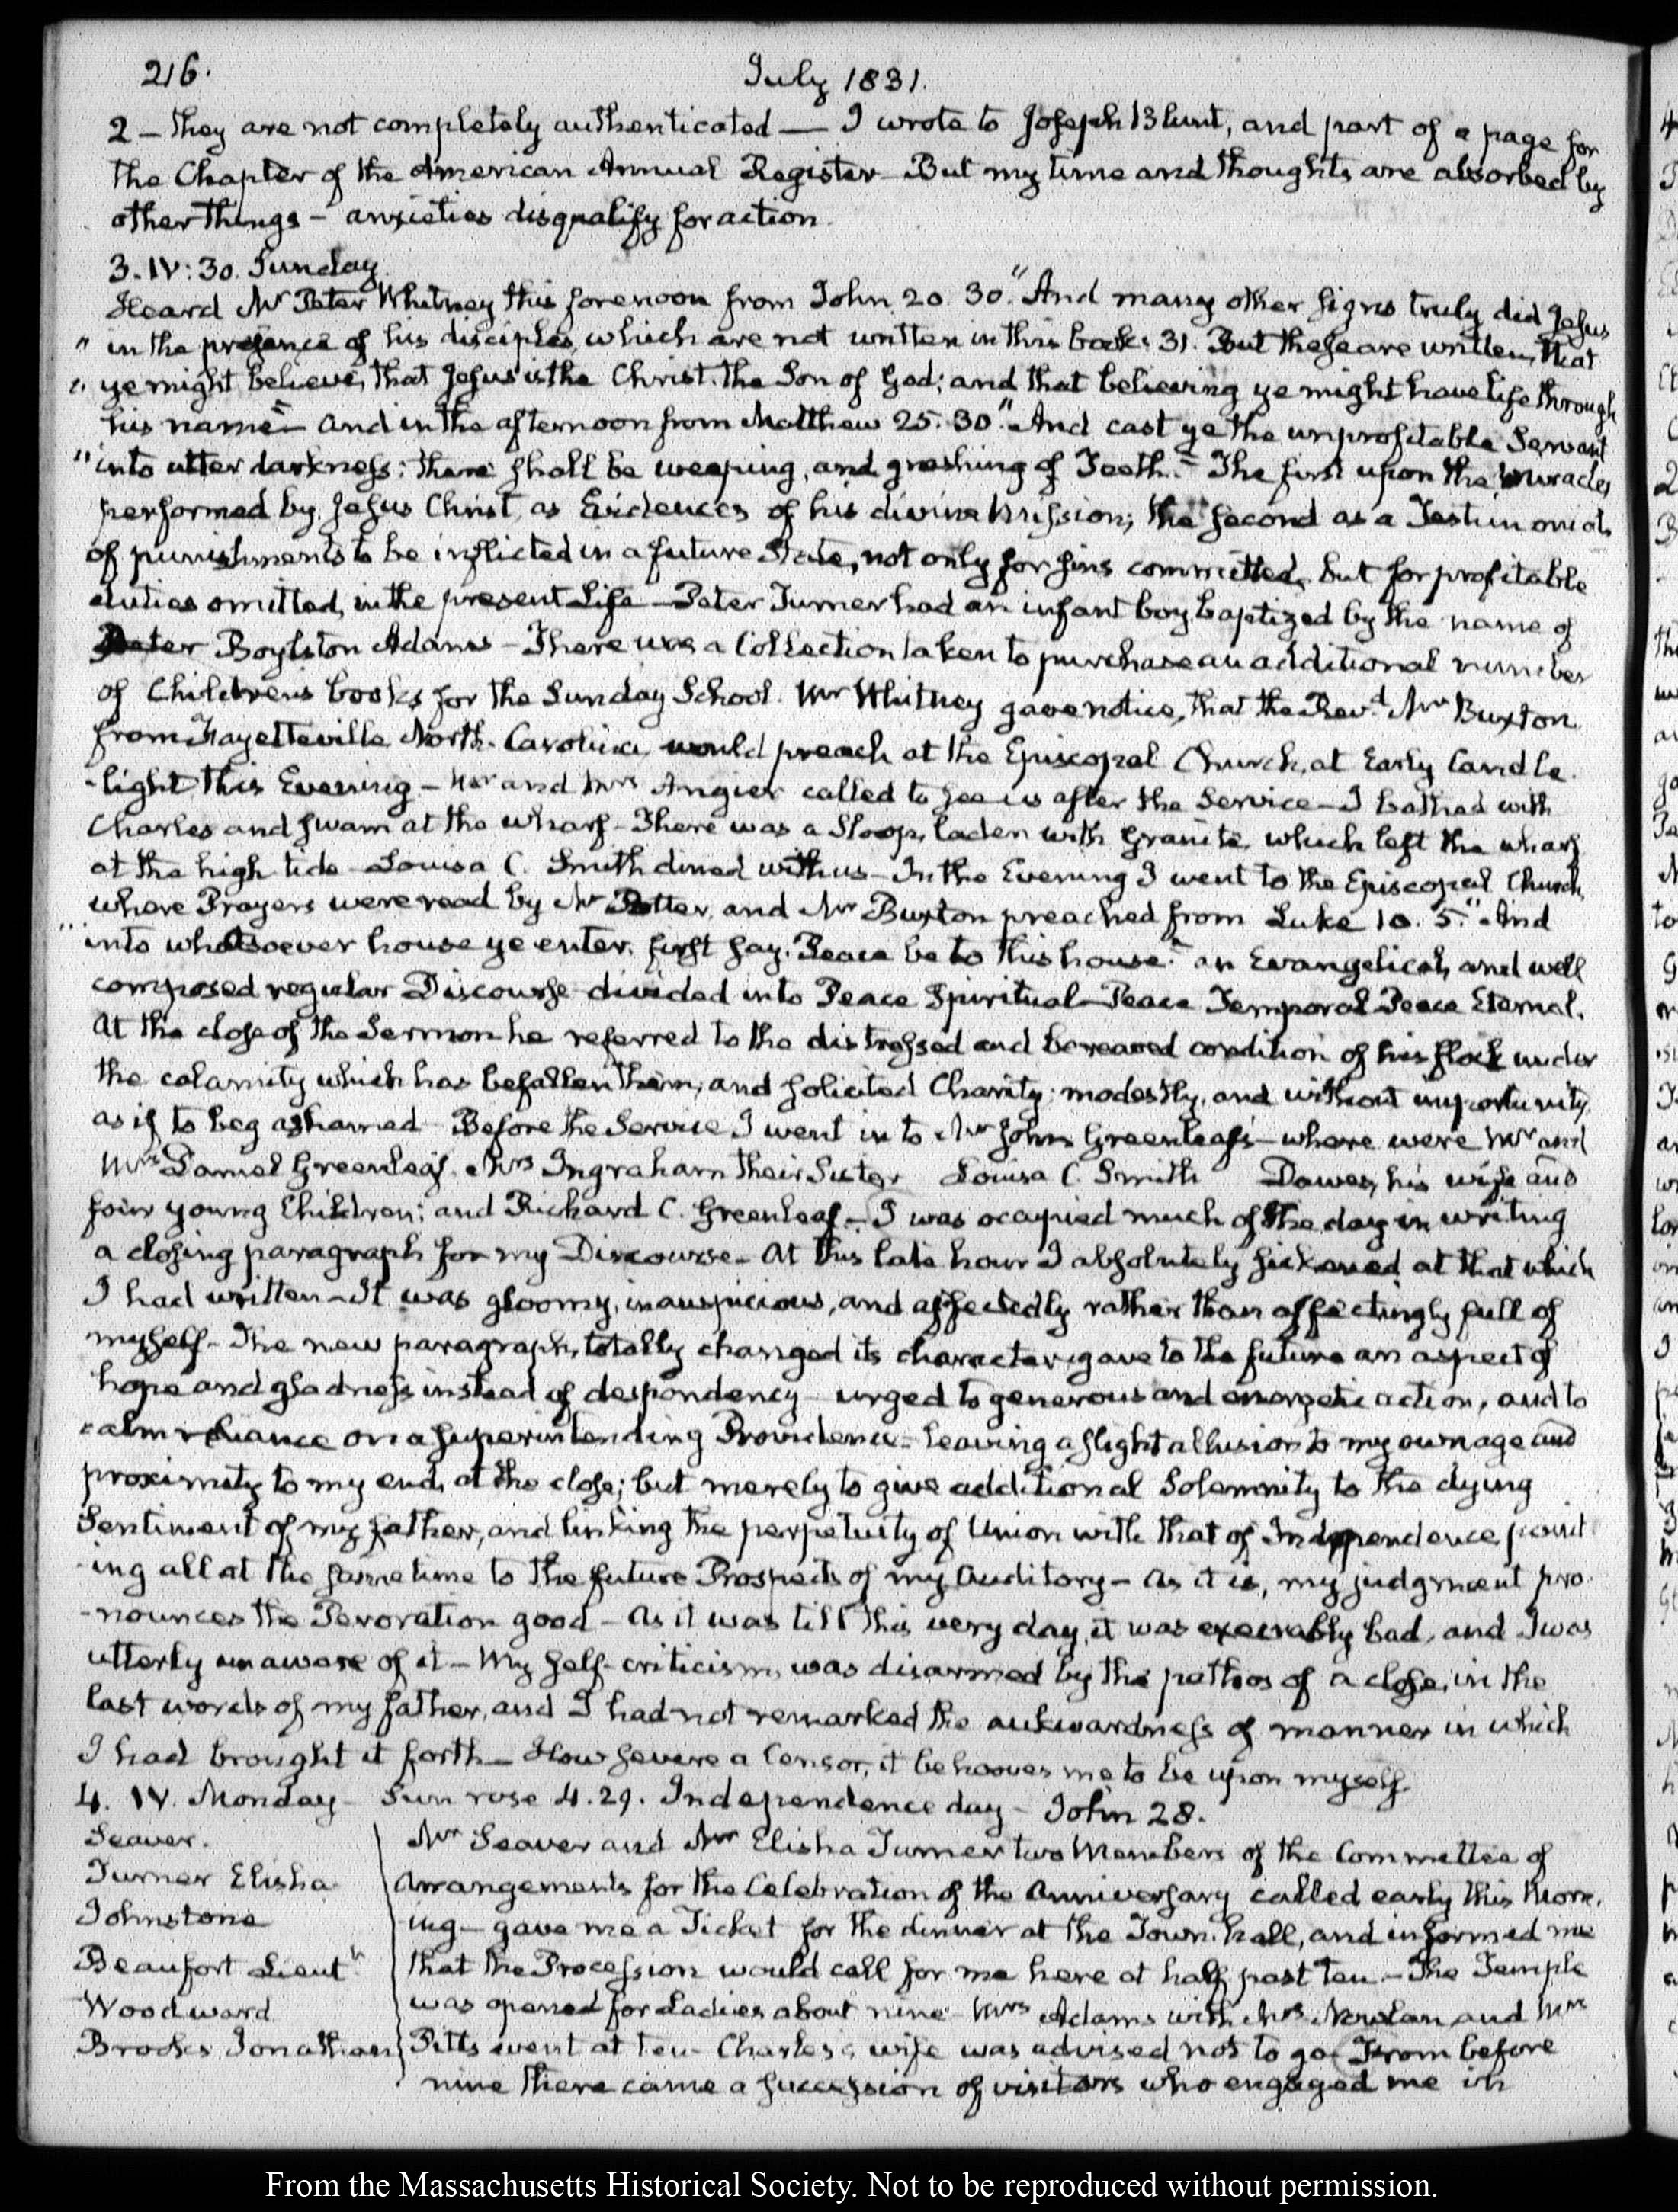 216.
July 1831.
2 — they are not completely authenticated — I wrote to Joseph Blunt, and part of a page for
the Chapter of the American Annual Register — But my time and thoughts are absorbed by
other things — anxieties disqualify for action.
3. IV:30. Sunday.
Heard Mr Peter Whitney this forenoon from John 20. 30. "And many other signs truly did Jesus
" in the presence of his disciples, which are not written in this book: 31. But these are written, that
" ye might believe, that Jesus is the Christ, the Son of God; and that believing ye might have life through
his name" — and in the afternoon from Matthew 25. 30. "And cast ye the unprofitable Servant
" into utter darkness: there shall be weeping, and gnashing of Teeth." — The first upon the miracles
performed by Jesus Christ, as Evidences of his divine Mission; the second as a Testimonial
of punishments to be inflicted in a future State, not only for sins committed, but for profitable
duties omitted, in the present Life — Peter Turner had an infant boy baptized by the name of
Peter Boylston Adams — There was a Collection taken to purchase an additional number
of Children's books for the Sunday School. Mr Whitney gave notice, that the Revd. Mr Buxton
from Fayetteville North-Carolina would preach at the Episcopal Church, at Early Candle
-light this Evening — Mr and Mrs Angier called to see us after the Service — I bathed with
Charles and swam at the wharf — There was a Sloop, laden with granite, which left the wharf
at the high tide — Louisa C. Smith dined with us — In the Evening I went to the Episcopal Church,
where Prayers were read by Mr Potter, and Mr Buxton preached from Luke 10. 5. "And
" into whatsoever house ye enter, first say, Peace be to this house." an Evangelical, and well
composed regular Discourse divided into Peace Spiritual — Peace Temporal Peace Eternal.
At the close of the Sermon he referred to the distressed and bereaved condition of his flock under
the calamity which has befallen them, and solicited Charity; modestly, and without importunity
as if to beg ashamed — Before the Service I went in to Mr John Greenleaf's — where were Mr and
Mrs Daniel Greenleaf. Mrs Ingraham their Sister Louisa C. Smith Dawes, his wife and
four young Children; and Richard C. Greenleaf — I was ocupied much of the day in writing
a closing paragraph for my Discourse — At this late hour I absolutely sickened at that which
I had written — It was gloomy, inauspicious, and affectedly rather than affectingly full of
myself — The new paragraph, totally changed its character; gave to the future an aspect of
hope and gladness instead of despondency — urged to generous and energetic action, and to
calm reliance on a superintending Providence — leaving a slight allusion to my own age and
proximity to my end, at the close; but merely to give additional Solemnity to the dying
Sentiment of my father, and linking the perpetuity of Union with that of Independence, point
-ing all at the same time to the future Prospects of my Auditory — As it is, my judgment pro-
-nounces the Peroration good — As it was till this very day, it was execrably bad, and I was
utterly unaware of it — My self-criticism, was disarmed by the pathos of a close, in the
last words of my father, and I had not remarked the aukwardness of manner in which
I had brought it forth — How severe a Censor, it behooves me to be upon myself.
4. IV. Monday — Sun rose 4.29. Independence day — John 28.
Seaver.
Turner Elisha
Johnstone
Beaufort Lieut
Woodward
Brooks Jonathan
Mr Seaver and Mr Elisha Turner two Members of the Committee of
Arrangements for the Celebration of the Anniversary called early this Morn-
ing — gave me a Ticket for the dinner at the Town-hall, and informed me
that the Procession would call for me here at half past ten — The Temple
was opened for Ladies about nine — Mrs Adams with Mrs Nowlan and Mrs
Pitts went at ten — Charles's wife was advised not to go — From before
nine there came a succession of visitors who engaged me in
From the Massachusetts Historical Society. Not to be reproduced without permission.